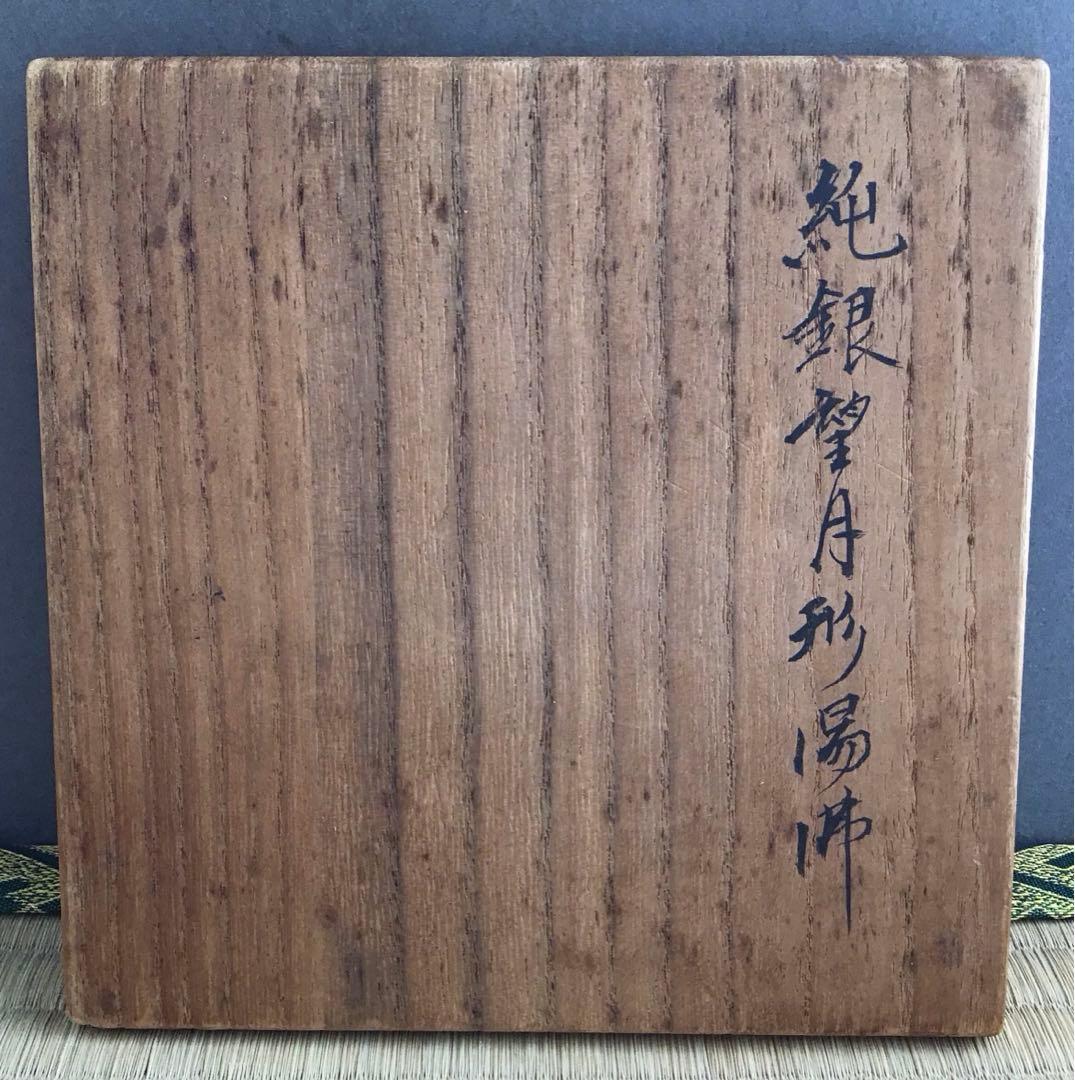 純銀望月形湯沸